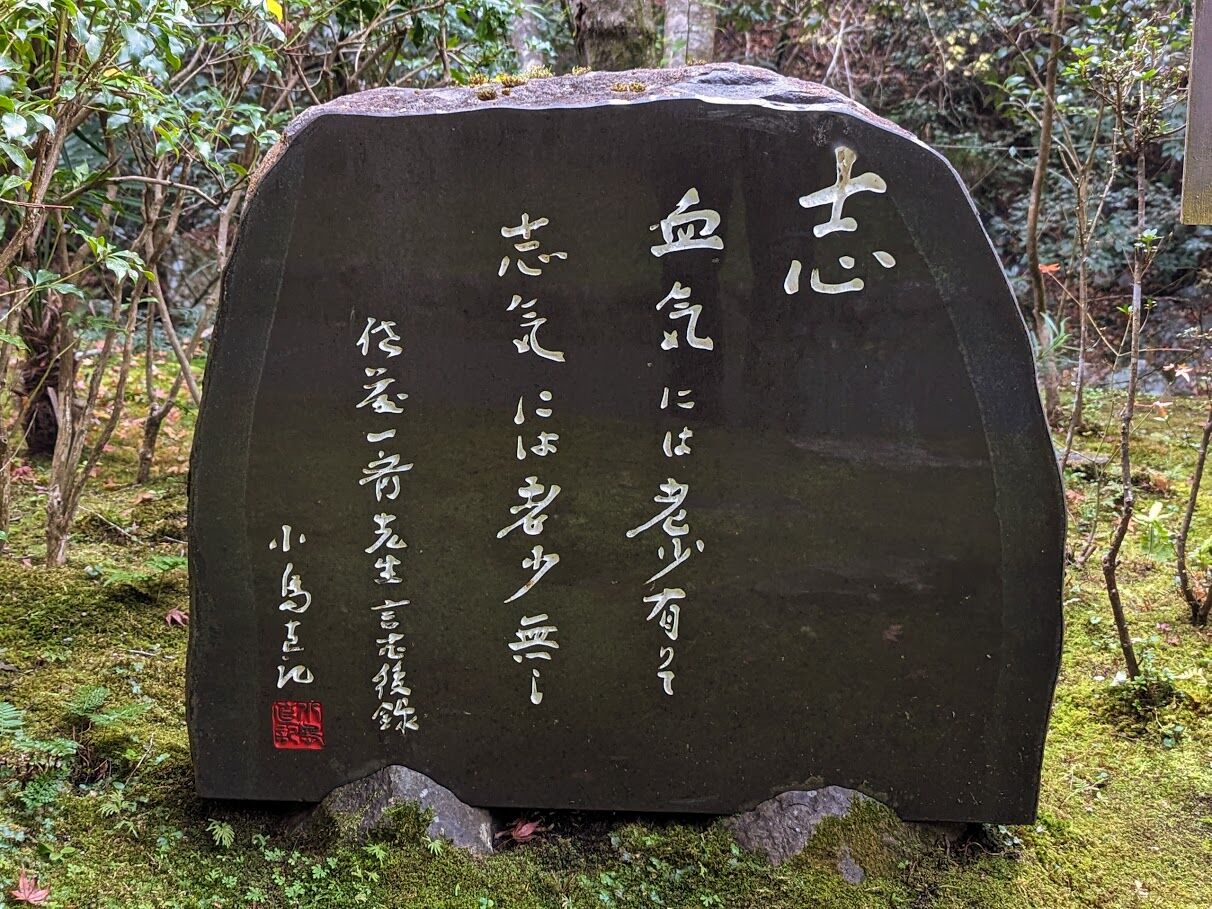 志
血気には老少有りて
志気には老少無し
佐藤一斎先生言志後録
小島直記
小島直記